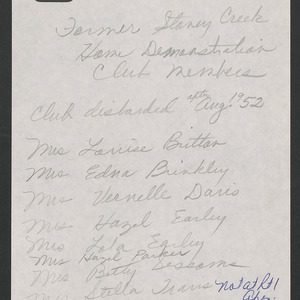 Former Stoney Creek
Home Demonstration
Club Members
Club disbanded after Aug. 1952
Mrs Louise Britton
Mrs Edna Brinkley
Mrs Vernelle Davis
Mrs Hazel Earley
Mrs Lola Earley
Mrs Hazel Parker
Mrs Betty Sessoms
Mrs Stella Travis not at Rt 1